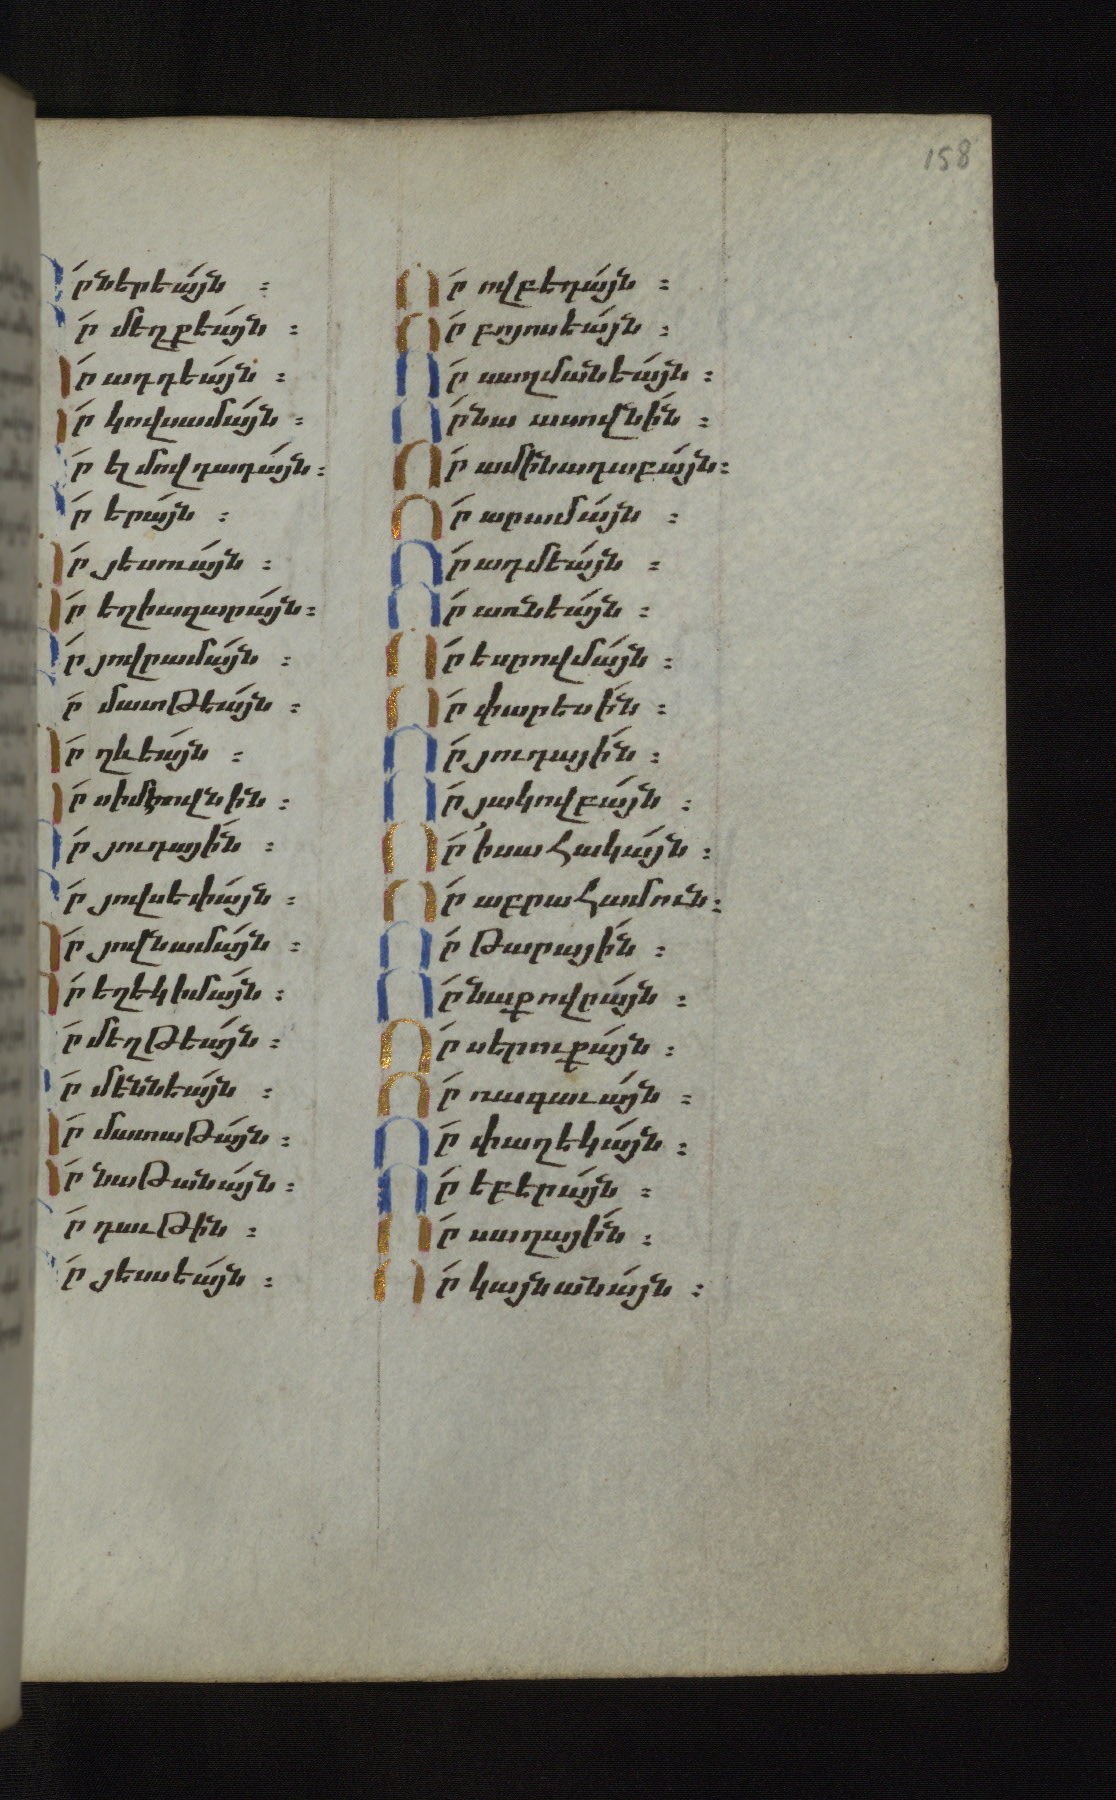 158
Որ ներեայն :
Որ մեղքեայն :
Որ ադդեայն :
Որ կովսամայն :
Որ էլմովդադայն :
Որ երայն :
Որ յեսուայն :
Որ եղիազարայն :
Որ յովրամայն :
Որ մատթեայն :
Որ ղևեայն :
Որ սիմեովնին :
Որ յուդային :
Որ յովսեփայն :
Որ յովնամայն :
Որ եղեկիմայն :
Որ մեղթեայն :
Որ մեննեայն :
Որ մատաթայն :
Որ նաթանայն :
Որ դաւթին :
Որ յեսսեայն :
Որ ովբեդայն :
Որ բոյոսեայն :
Որ սաղմանեայն :
Որ նաասովնին :
Որ ամինադաբայն :
Որ արամայն :
Որ ադմեայն :
Որ առնեայն :
Որ եսրովմայն :
Որ փարեսին :
Որ յուդային :
Որ յակովբայն :
Որ իսահակայն :
Որ աբրահամուն :
Որ թարային :
Որ նաքովրայն :
Որ սերուքայն :
Որ ռագաւայն :
Որ փաղեկայն :
Որ եբերայն :
Որ սաղային :
Որ կայնանայն :